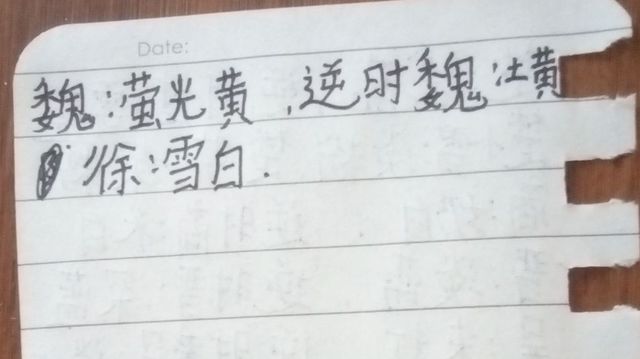 Date:
魏:萤光黄,逆时魏:土黄
徐:雪白.